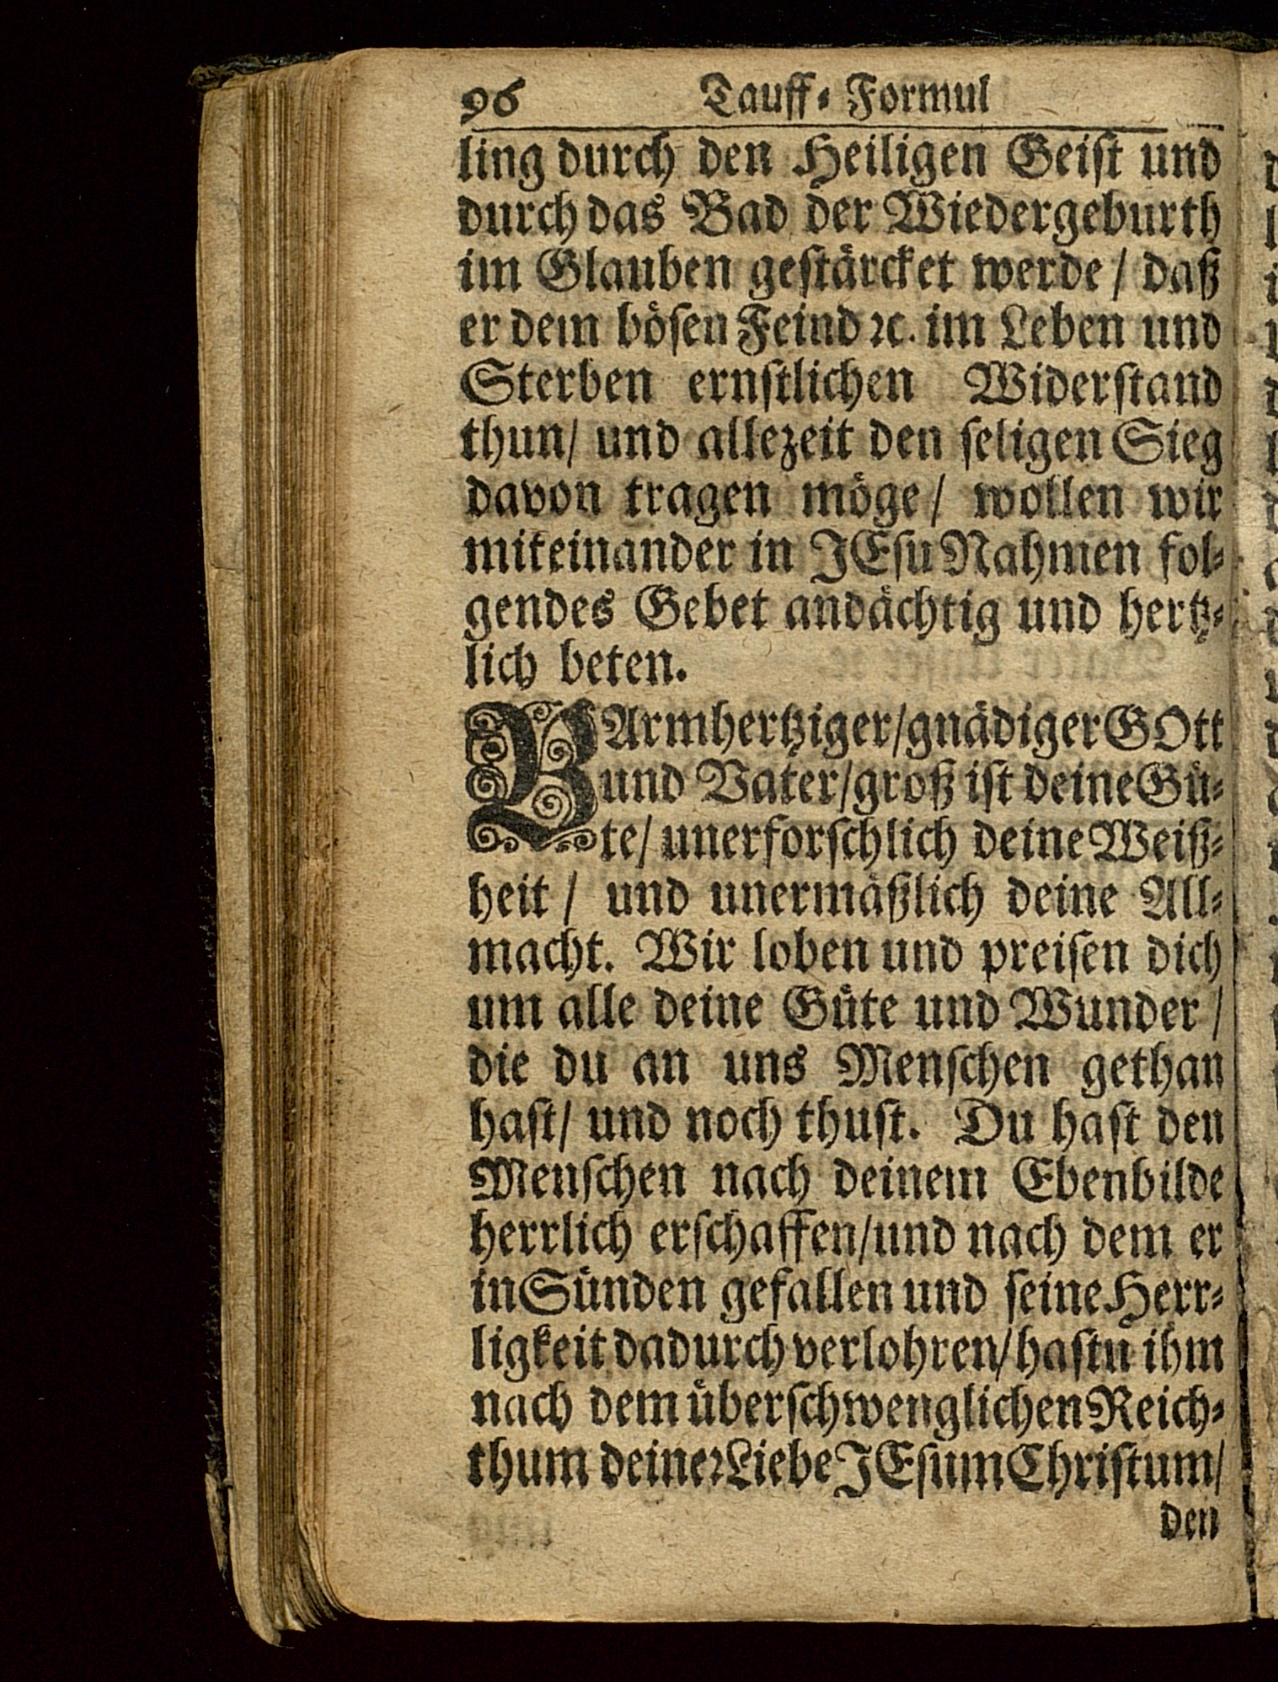 96 Tauff⸗Formul
ling durch den Heiligen Geist und
durch das Bad der Wiedergeburth
im Glauben gestärcket werde / daß
er dem bösen Feind ꝛc. im Leben und
Sterben ernstlichen Widerstand
thun/ und allezeit den seligen Sieg
davon tragen möge/ wollen wir
miteinander in JEsu Nahmen fol⸗
gendes Gebet andächtig und hertz⸗
lich beten.
BArmhertziger/gnädiger GOtt
und Vater/groß ist deine Gü⸗
te/ unerforschlich deine Weiß⸗
heit / und unermäßlich deine All⸗
macht. Wir loben und preisen dich
um alle deine Güte und Wunder /
die du an uns Menschen gethan
hast/ und noch thust. Du hast den
Menschen nach deinem Ebenbilde
herrlich erschaffen/und nach dem er
in Sünden gefallen und seine Herr⸗
ligkeit dadurch verlohren/hastu ihm
nach dem überschwenglichen Reich⸗
thum deiner Liebe JEsum Christum/
den